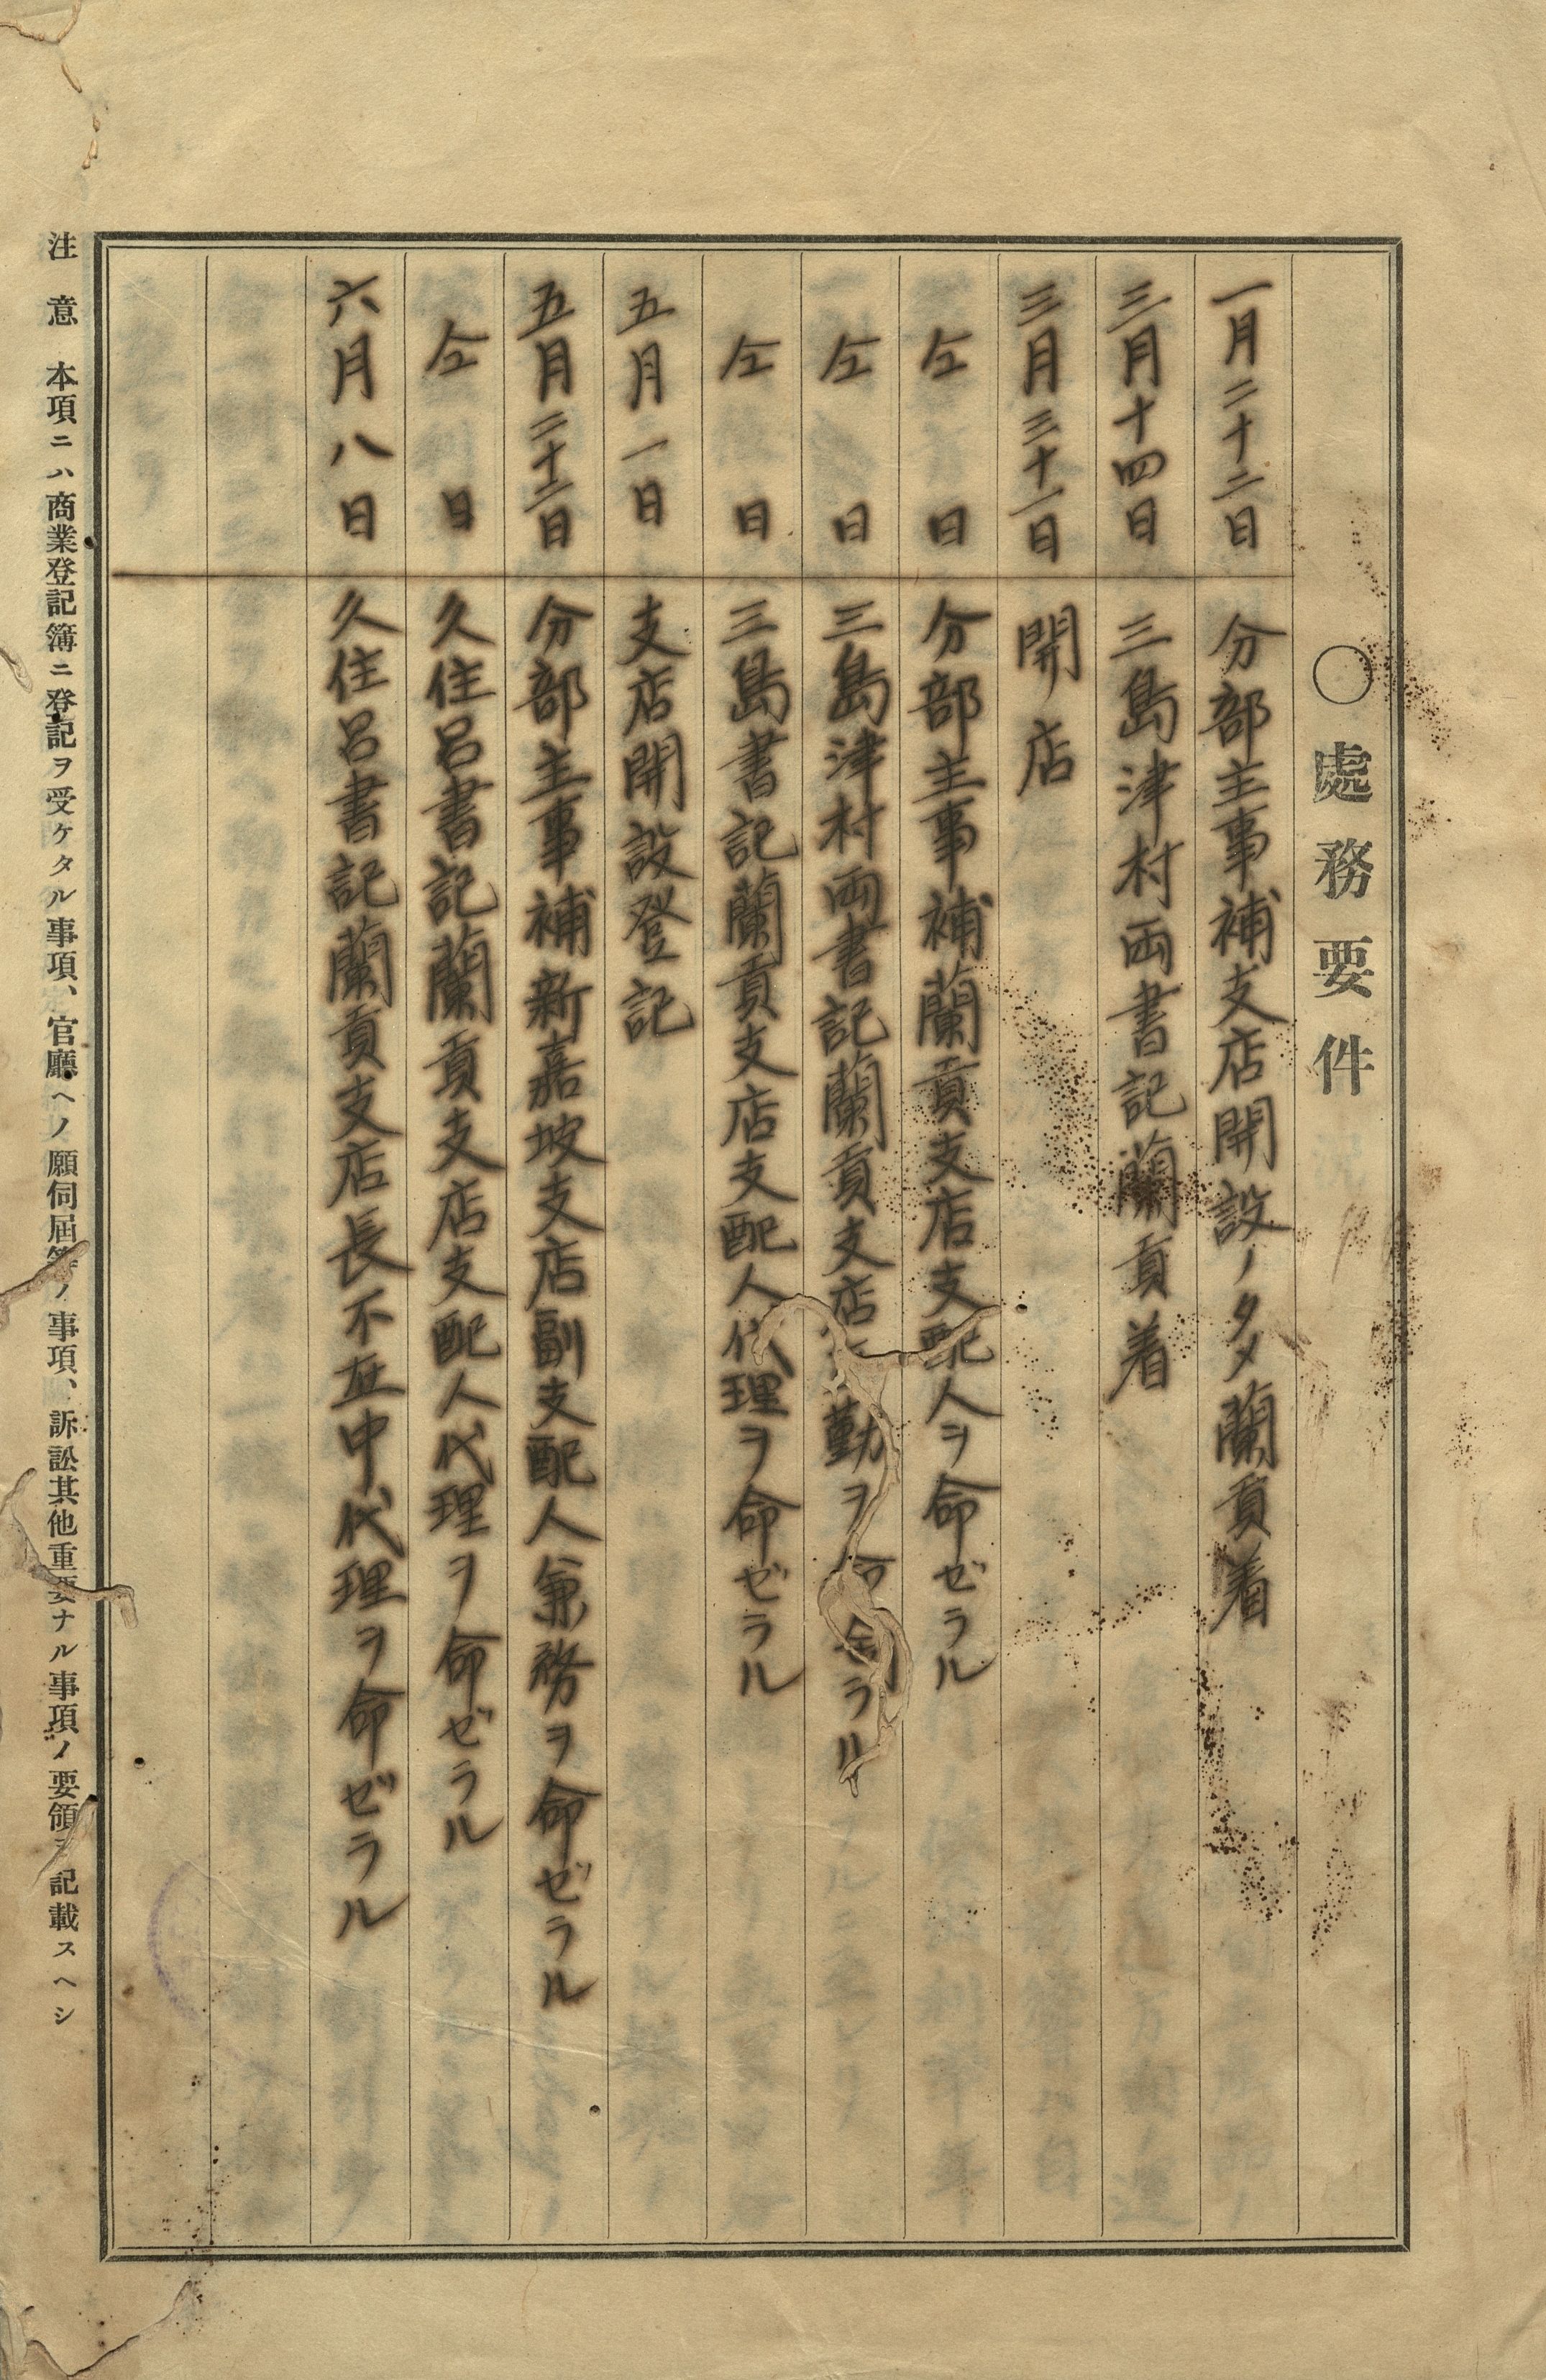 〇處務要件
一月二十二日　分部主事補支店開設ノタメ蘭貢着
三月十四日　三島津村両書記蘭貢着
三月三十一日　開店
仝日　分部主事補蘭貢支店支配人ヲ命ゼラル
仝日　三島津村両書記蘭貢支店勤ヲ命ラル
仝日　三島書記蘭貢支店支配人代理ヲ命ゼラル
五月一日　支店開設登記
五月二十二日　分部主事補新嘉坡支店副支配人兼務ヲ命ゼラル
仝日　久住呂書記蘭貢支店支配人代理ヲ命ゼラル
六月八日　久住呂書記蘭貢支店長不在中代理ヲ命ゼラル
注意　本項ニハ商業登記簿ニ登記ヲ受ケタル事項、官廳ヘノ願伺屆等ノ事項、訴訟其他重要ナル事項ノ要領ヲ記載スヘシ